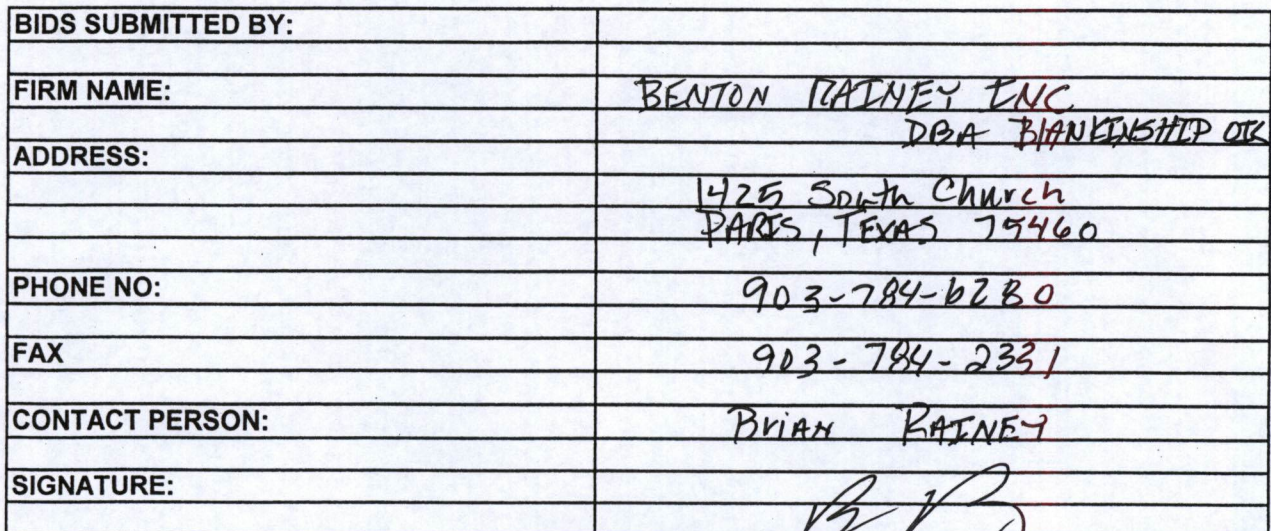 BIDS SUBMITTED BY:
FIRM NAME: BENTON RAINEY INC
DBA BlANKINSHIP OIL
ADDRESS:
1425 South Church
PARIS, TEXAS 75460
PHONE NO: 903-784-6280
FAX 903-784-2331
CONTACT PERSON: BriAN RAINEY
SIGNATURE: